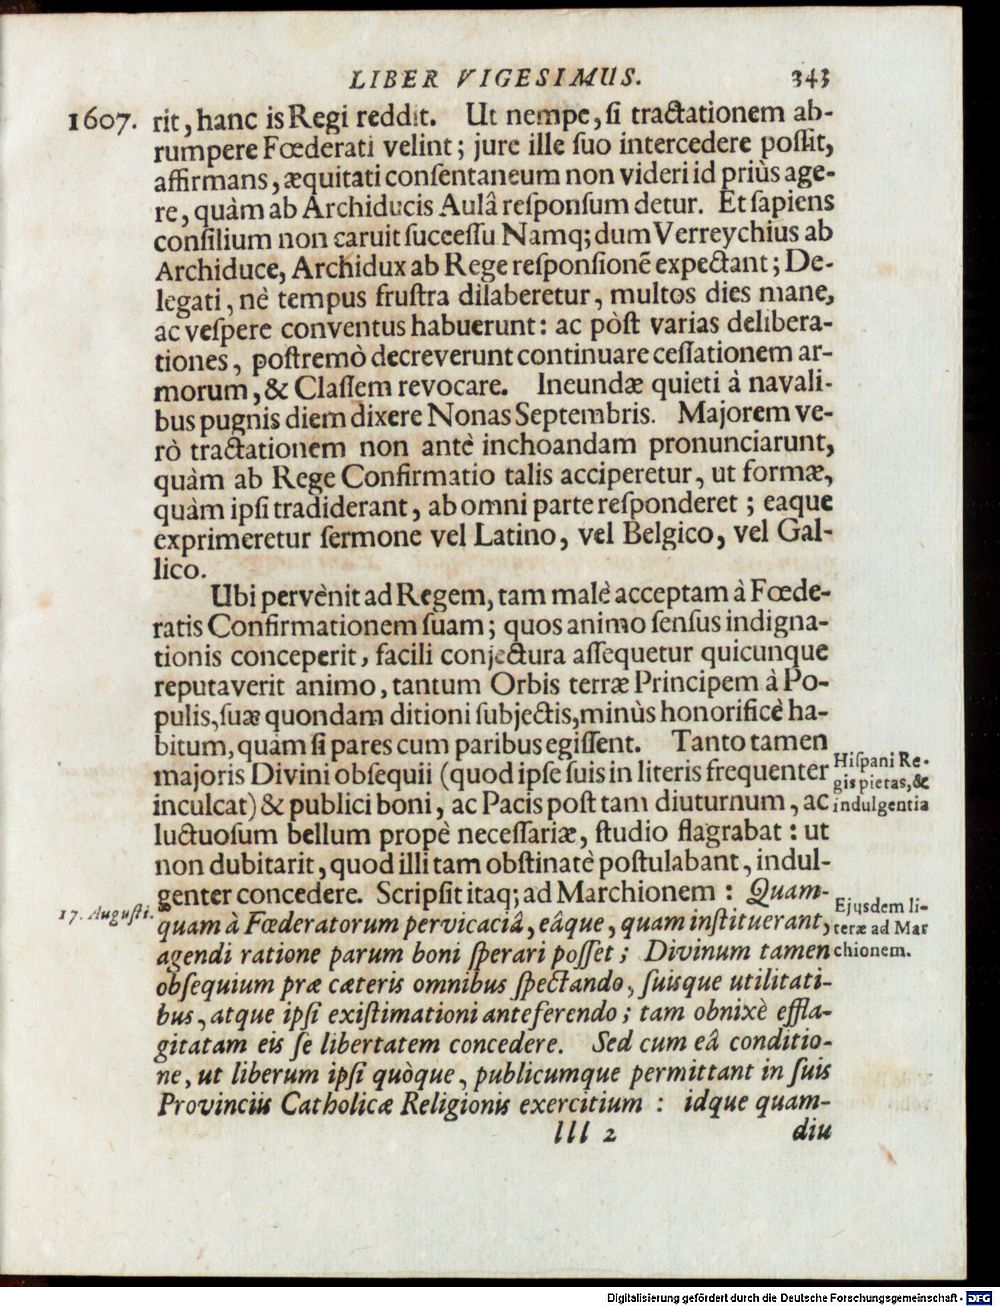 LIBER VIGESIMUS. 343
1607. rit, hanc is Regi reddit. Ut nempe, ſi tractationem ab-
rumpere Fœderati velint; jure ille ſuo intercedere poſſit,
affirmans, æquitati conſentaneum non videri id priùs age-
re, quàm ab Archiducis Aulâ reſponſum detur. Et ſapiens
conſilium non caruit ſucceſſu Namq; dum Verreychius ab
Archiduce, Archidux ab Rege reſponſionẽ expectant; De-
legati, nè tempus fruſtra dilaberetur, multos dies mane,
ac veſpere conventus habuerunt: ac pòſt varias delibera-
tiones, poſtremò decreverunt continuare ceſſationem ar-
morum, & Claſſem revocare. Ineundæ quieti à navali-
bus pugnis diem dixere Nonas Septembris. Majorem ve-
rò tractationem non antè inchoandam pronunciarunt,
quàm ab Rege Confirmatio talis acciperetur, ut formæ,
quàm ipſi tradiderant, ab omni parte reſponderet; eaque
exprimeretur ſermone vel Latino, vel Belgico, vel Gal-
lico.
Ubi pervènit ad Regem, tam malè acceptam à Fœde-
ratis Confirmationem ſuam; quos animo ſenſus indigna-
tionis conceperit, facili conjectura aſſequetur quicunque
reputaverit animo, tantum Orbis terræ Principem à Po-
pulis, ſuæ quondam ditioni ſubjectis, minùs honorificè ha-
bitum, quàm ſi pares cum paribus egiſſent. Tanto tamen
majoris Divini obſequii (quod ipſe ſuis in literis frequenter
inculcat) & publici boni, ac Pacis poſt tam diuturnum, ac
luctuoſum bellum propè neceſſariæ, ſtudio flagrabat: ut
non dubitarit, quod illi tam obſtinatè poſtulabant, indul-
genter concedere. Scripſit itaq; ad Marchionem: Quam-
quam à Fœderatorum pervicaciâ, eâque, quam inſtituerant,
agendi ratione parum boni ſperari poſſet; Divinum tamen
obſequium præ cæteris omnibus ſpectando, ſuisque utilitati-
bus, atque ipſi exiſtimationi anteferendo; tam obnixè effla-
gitatam eis ſe libertatem concedere. Sed cum eâ conditio-
ne, ut liberum ipſi quòque, publicumque permittant in ſuis
Provinciis Catholicæ Religionis exercitium: idque quam-
lll 2 diu
Hiſpani Re-
gis pietas, &
indulgentia
17. Auguſti.
Ejusdem li-
teræ ad Mar
chionem.
Digitalisierung gefördert durch die Deutsche Forschungsgemeinschaft - DFG